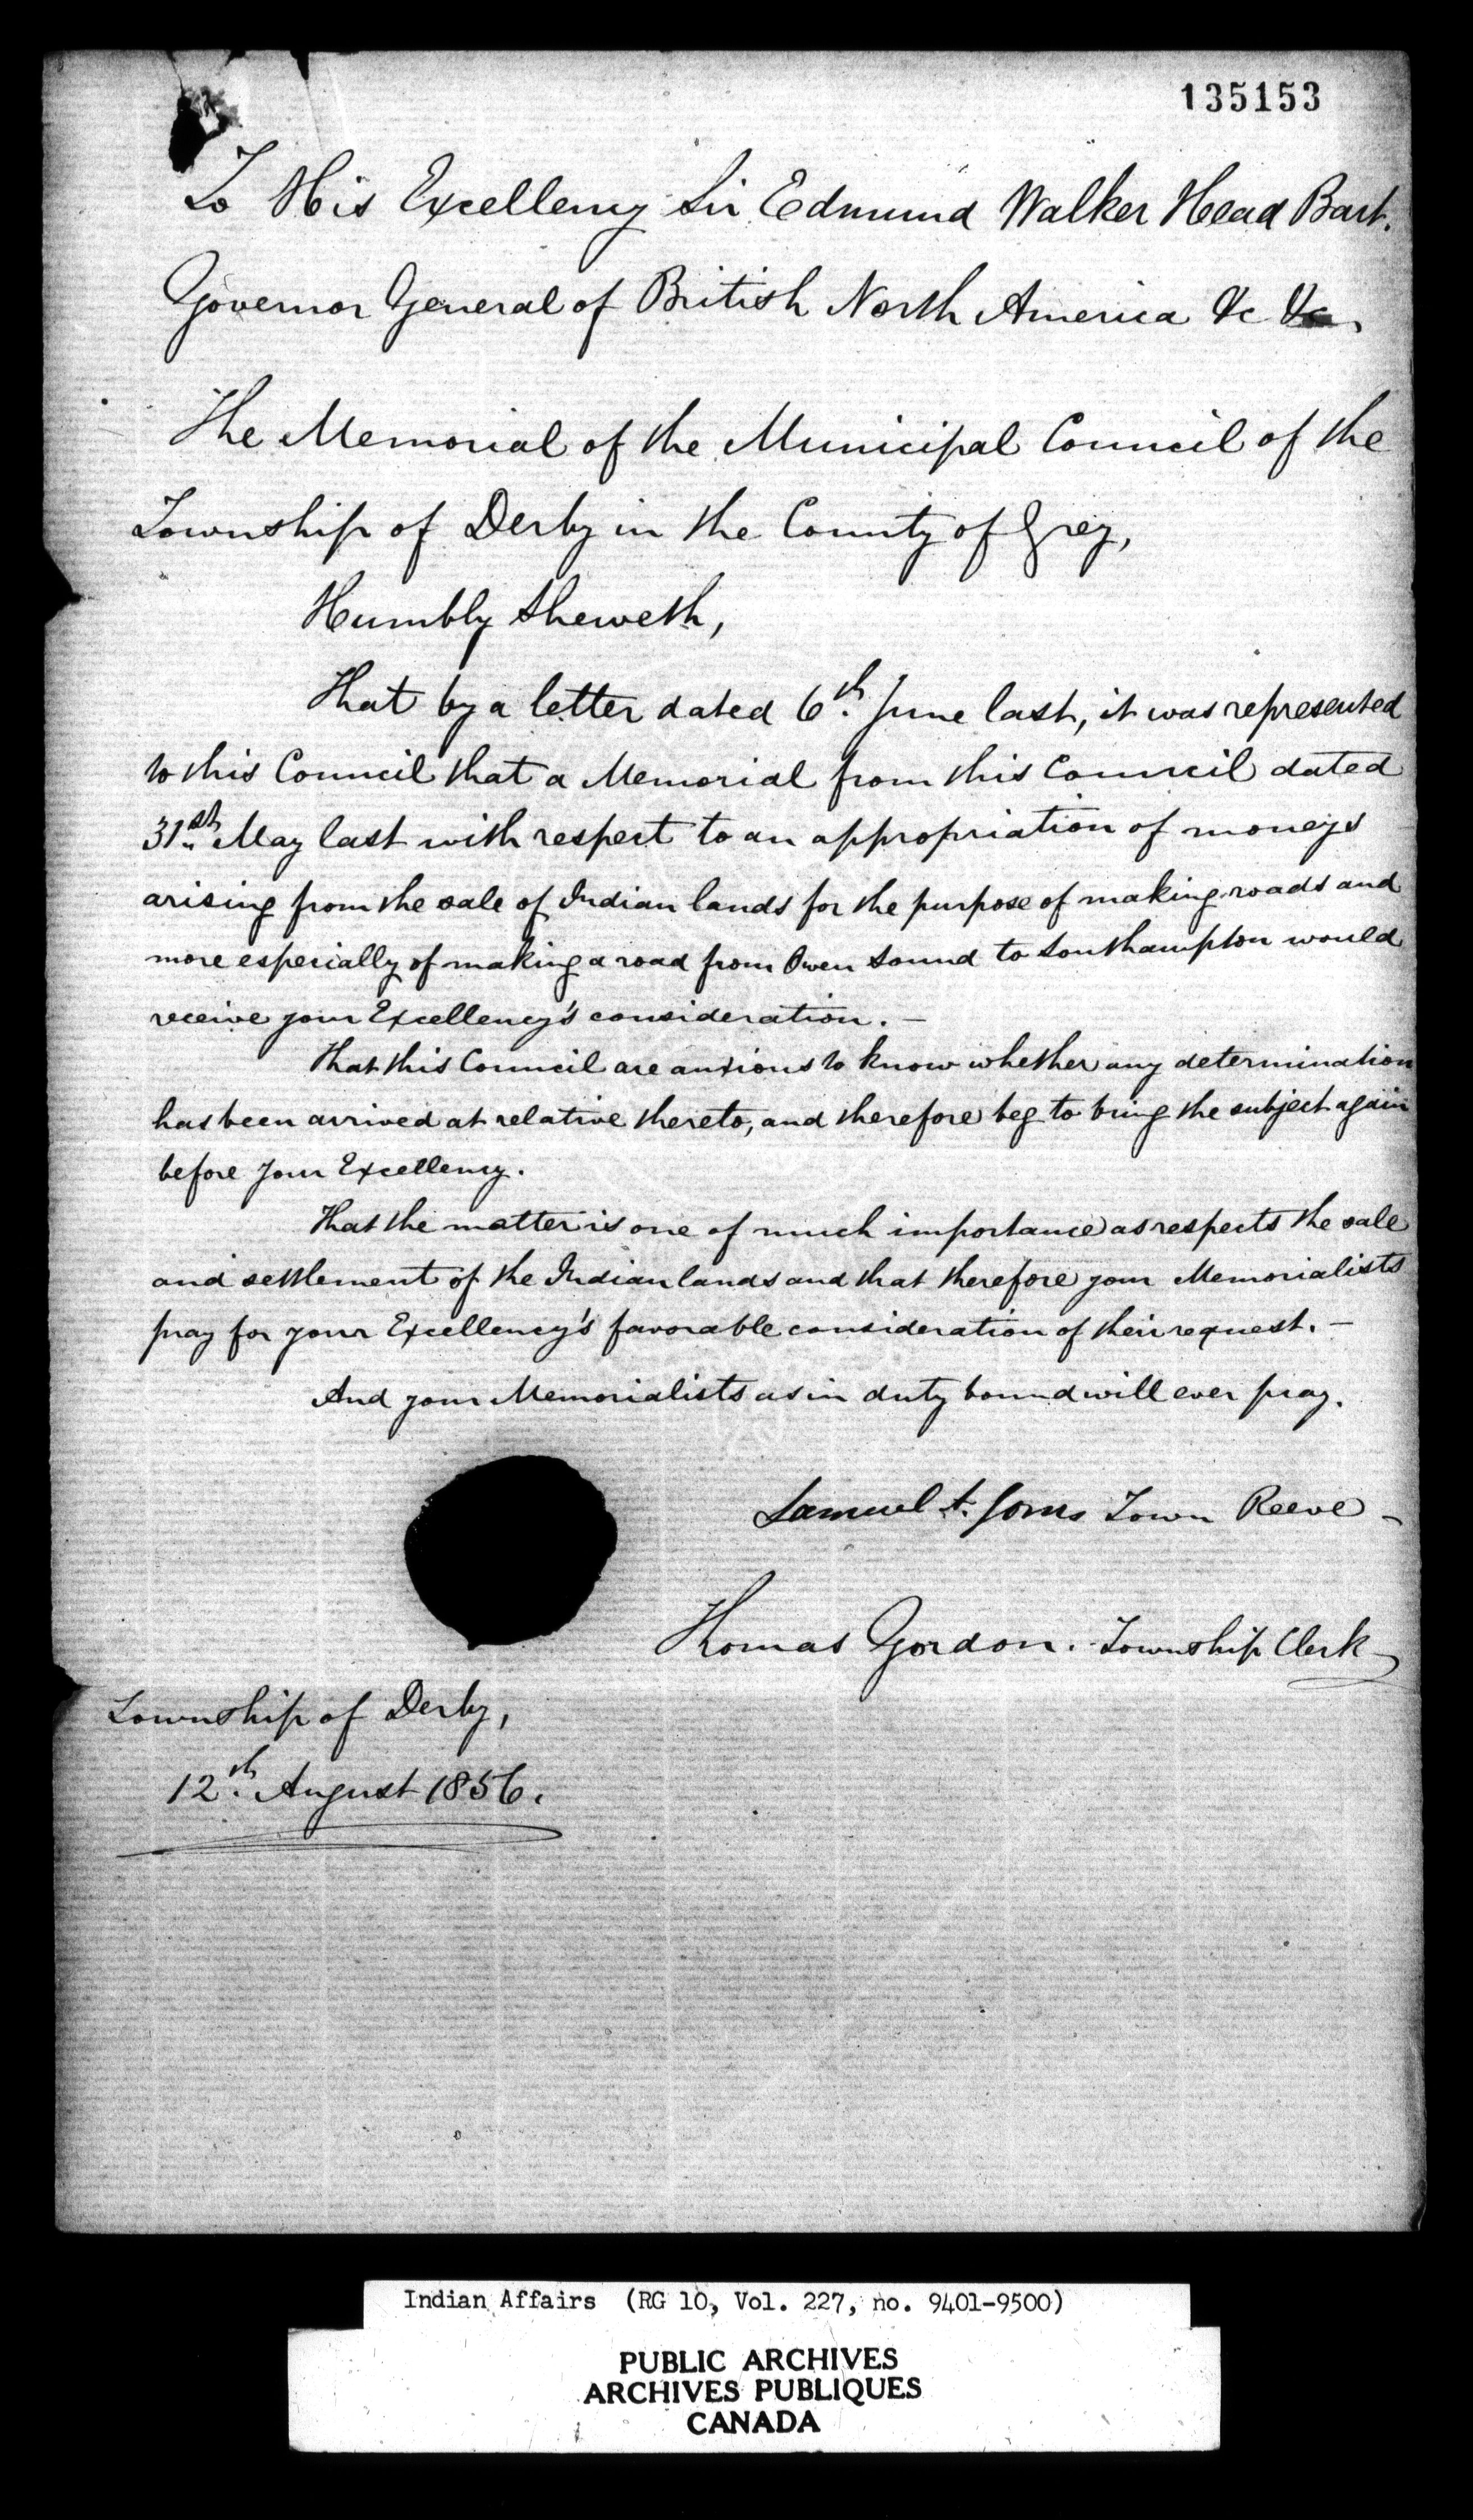 135153
To His Excellency Sir Edmund Walker Head Bart.
Governor General of British North America &c &c.
The Memorial of the Municipal Council of the
Township of Derby in the County of Grey,
Humbly Sheweth,
That by a letter dated 6th. June last, it was represented
to this Council that a Memorial from this Council dated
31st. May last with respect to an appropriation of moneys
arising from the sale of Indian lands for the purpose of making roads and
more especially of making a road from Owen Sound to Southampton would
receive your Excellency's consideration. —
That this Council are anxious to know whether any determination
has been arrived at relative thereto, and therefore beg to bring the subject again
before your Excellency.
That the matter is one of much importance as respects the sale
and settlement of the Indian lands and that therefore your Memorialists
pray for your Excellency's favorable consideration of their request. —
And your Memorialists as in duty bound will ever pray.
Samuel Town Reeve —
Thomas Gordon. Township Clerk
Township of Derby,
12th. August 1856.
Indian Affairs (RG 10, Vol. 227, no. 9401-9500)
PUBLIC ARCHIVES
ARCHIVES PUBLIQUES
CANADA